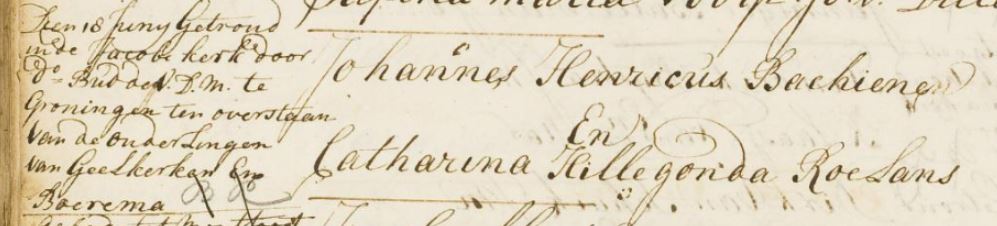 Den 18 Juny Getroud
in de Jacobi kerk door
Do Budde V.D.M. te
Groningen ten overstaan
van de ouderlingen
van Geelkerken En
Boerema
Maria
Johannes Henricus Bachiene
En
Catharina Hillegonda Roelans